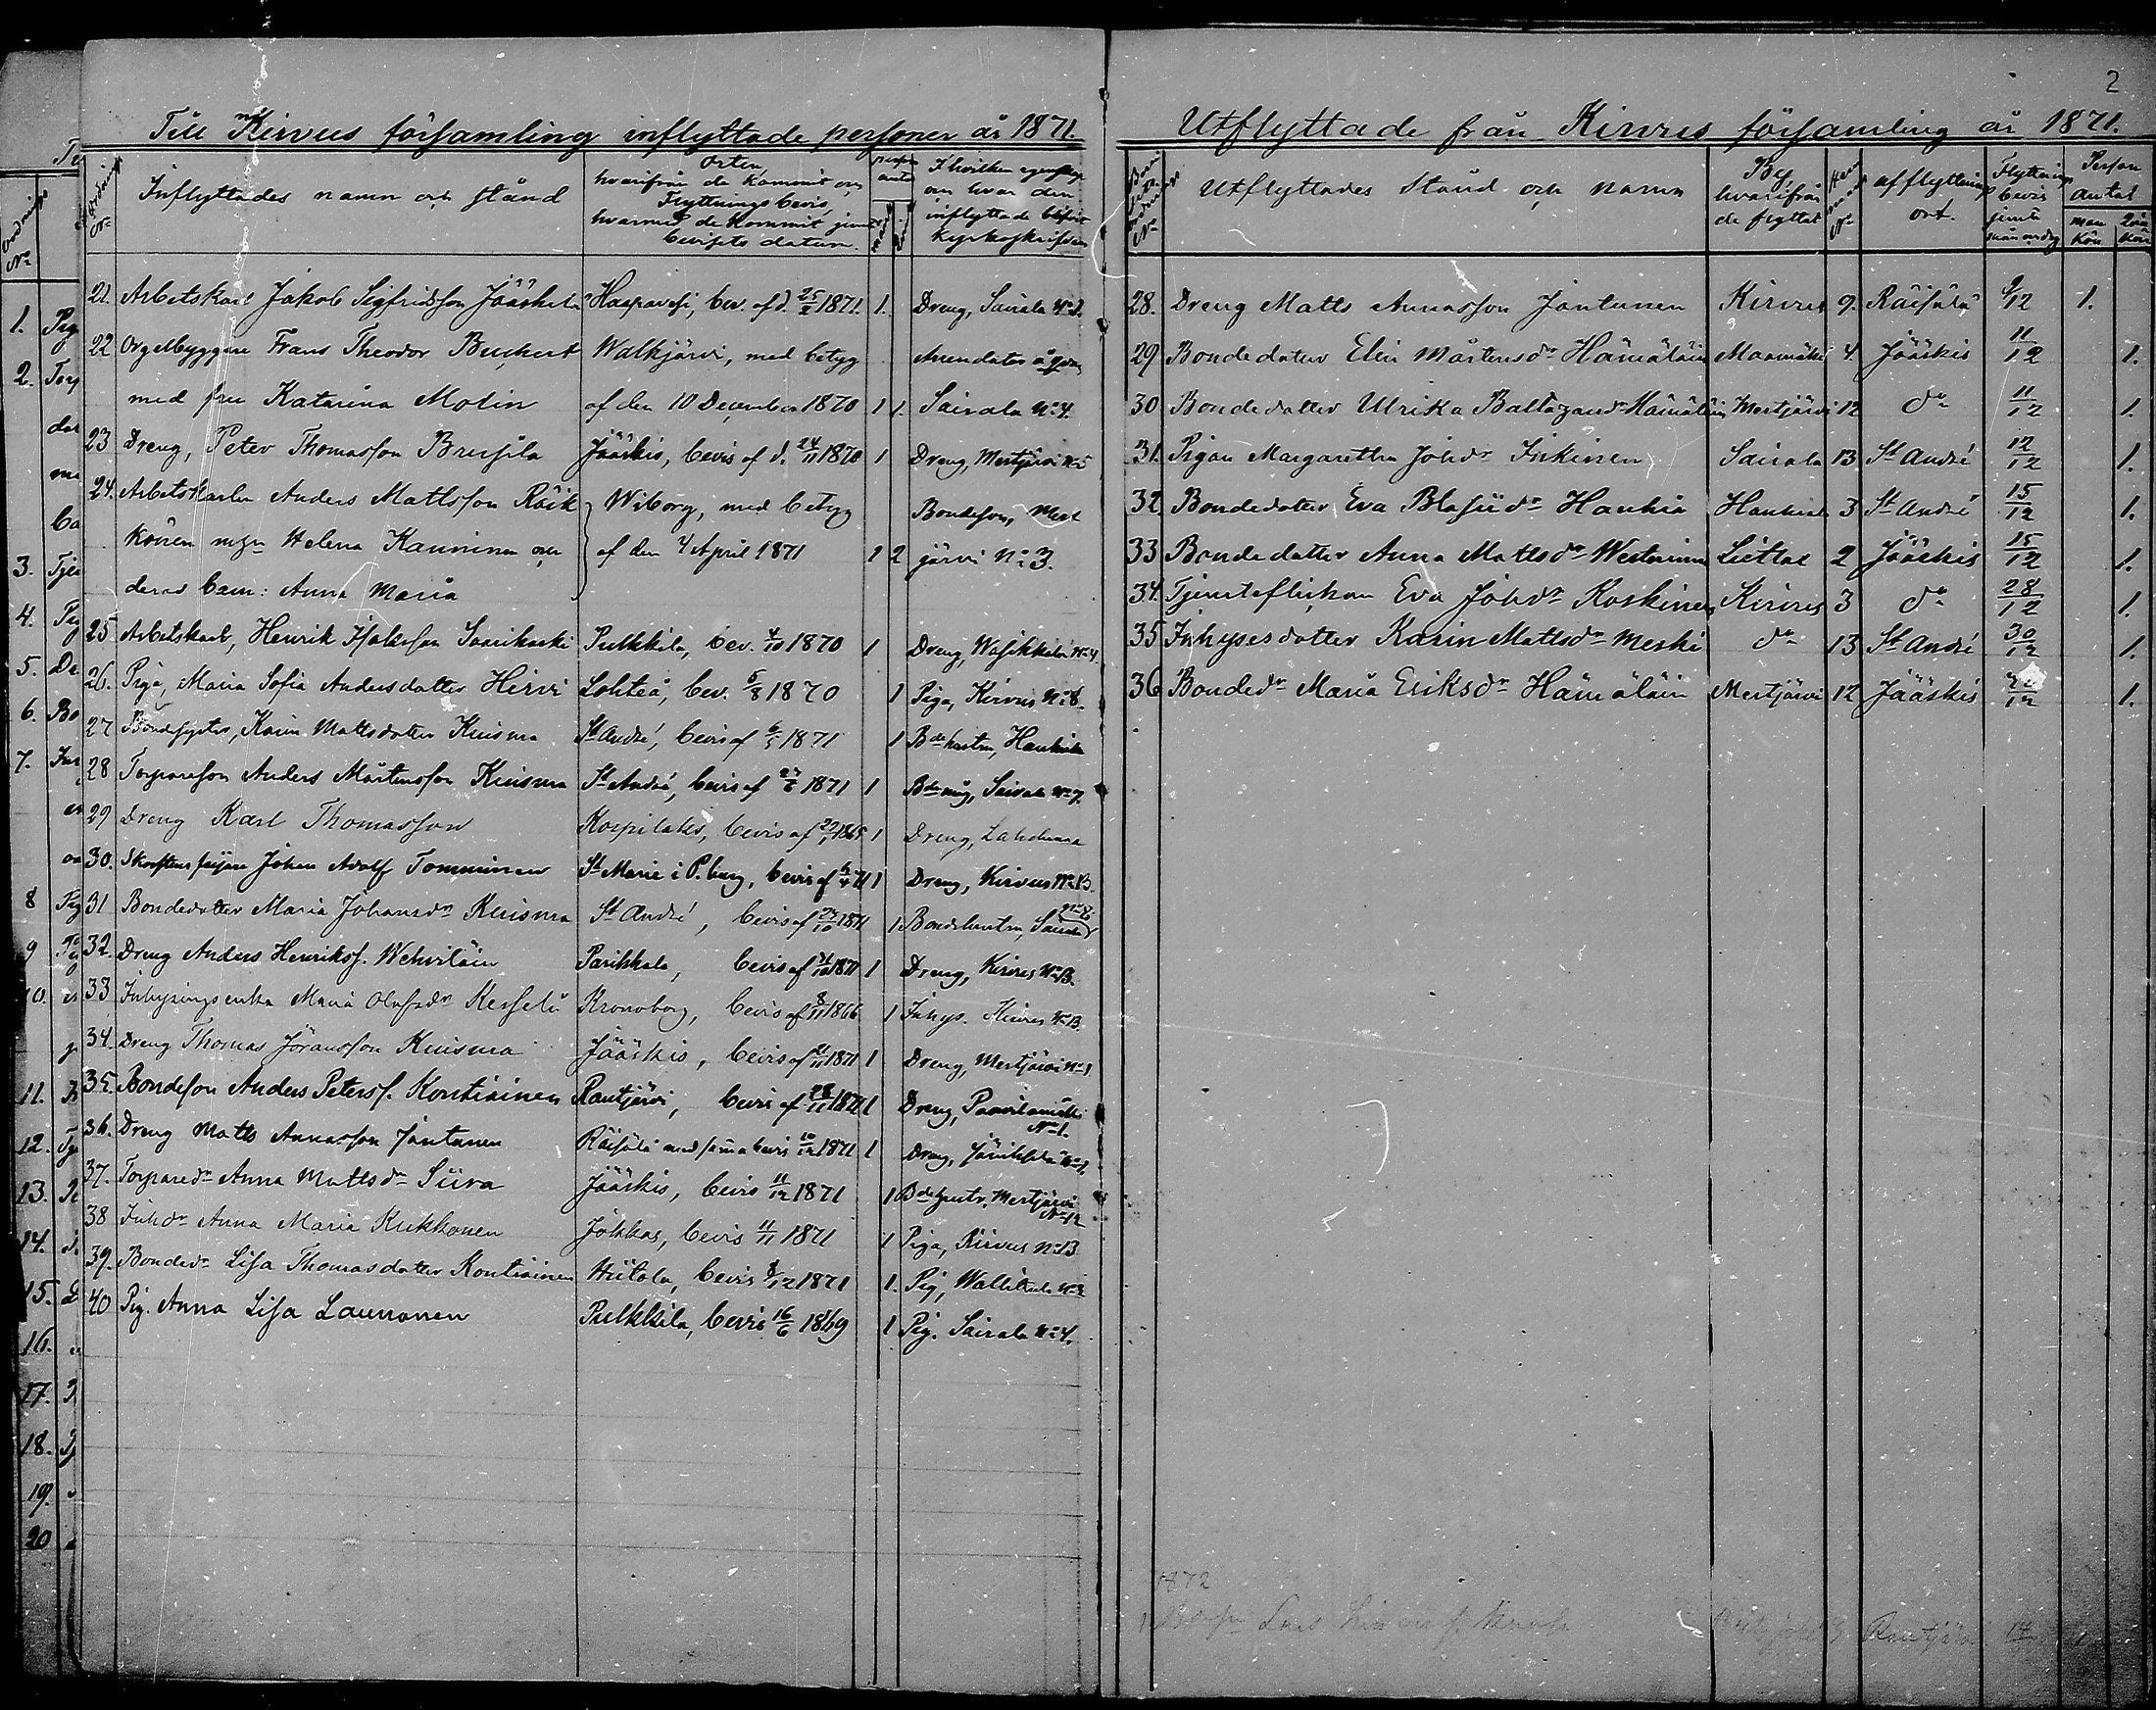 2
Till Kirvus församling inflyttade personer år 1871.
Inflyttades namn och stånd
Orten, hvarifrån de kommit och
Flyttningsbevis,
hvarmed de kommit jemte
bevisets datum.
21. Arbetskarl Jakob Sigfridsson Jääskelä Haapavesi, bev. af d. 25/2 1871. 1. Dreng, Sairala No 2.
22 Orgelbyggare Frans Theodor Buckert Walkjärvi, med betyg
med fru Katarina Molin af den 10 December 1870 1 1. Sairala No 4.
23 Dreng, Peter Thomasson Brusila Jääskis, bevis af d. 24/11 1870 1 Dreng, Mertjärvi No 5
24. Arbetskarlen Anders Mattsson Räik Wiborg, med betyg Bondeson, Mert
könen m. Helena Kauninen och af den 4 April 1871 1 2 järvi No 3.
deras barn: Anna Maria
25 Arbetskarl, Henrik Isaksson Saarikoski Pulkkila, bev. 4/10 1870 1 Dreng, Wasikkala No 4.
26. Piga, Maria Sofia Andersdotter Hirvi Lohteå, bev. 5/8 1870 1 Piga, Kirvus No 8.
27 Karin Mattsdotter Kuisma St André, bevis af 6/5 1871 1 Bde hustru, Haukiala
28 Torpareson Anders Mårtensson Kuisma St André, bevis af 27/6 1871 1 Bde måg, Sairala No 7.
29 Dreng Karl Thomasson Kospilaks, bevis af 1865 1 Dreng,
30. Skorstensfejare Johan Adolf Tomminen St Marie i P.burg, bevis af 6/4 71 1 Dreng, Kirvus No 13.
31 Bondedotter Maria Johansdr Kuisma St André, bevis af 24/10 1871 1. Bondehustru, Sairala
32. Dreng Anders Henrikss. Wehviläin Parikkala, bevis af 1871 1 Dreng, Kirvus No 13.
33 Inhysingsenka Maria Olofsdr Kesseli Kronoborg, bevis af 8/11 1866 1 Inhys. Kirvus No 13.
34. Dreng Thomas Jöransson Kuisma Jääskis, bevis af 21/11 1871 1 Dreng, Mertjärvi No 1
35. Bondeson Anders Peterss. Kontiainen Rautjärvi, bevis af 28/11 1871 1 Dreng, No 1.
36. Dreng Matts Annasson Jantunen Räisälä med samma bevis 10/12 1871 1 Dreng,
37. Torparedr Anna Mattsdr Siira Jääskis, bevis 11/12 1871 1 Bde hustr. Mertjärvi No 12
38 Inhdr Anna Maria Kukkonen Jokkas, bevis 11/11 1871 1 Piga, Kirvus No 13
39. Bondedr Lisa Thomasdotter Kontiainen Hiitola, bevis 8/12 1871 1. Pig,
40 Pig. Anna Lisa Launonen Pulkkila, bevis 16/6 1869 1 Pig. Sairala No 4.
Utflyttade från Kirvus församling år 1871.
Utflyttades Stånd och namn
By,
hvarifrån
de flyttat
afflyttnings
ort.
Flyttnings
bevis
jemte
Person
antal
man
kön
28. Dreng Matts Annasson Jantunen Kirvus 9. Räisälä 9/12 1.
29 Bondedotter Elin Mårtensdr Hämäläin 4. Jääskis 11/12 1.
30 Bondedotter Ulrika Baltzarsdr Hämäläin Mertjärvi 12 do 11/12 1.
31. Pigan Margaretha Johdr Inkinen Sairala 13 St André 12/12 1.
32 Bondedotter Eva Blasiidr Haukia Haukiala 3 St André 15/12 1.
33 Bondedotter Anna Mattsdr Westerinen 2 Jääskis 15/12 1.
34. Tjensteflickan Eva Johdr Roskinen Kirvus 3 do 28/12 1.
35 Inhysesdotter Karin Mattsdr Meski do 13 St André 30/12 1.
36 Bondedr Maria Eriksdr Hämäläin Mertjärvi 12 Jääskis 1.
1872
1
1.
2.
3.
4.
5.
6.
7.
8
9
10.
11.
12.
13.
14.
15.
16.
17.
18.
19.
20